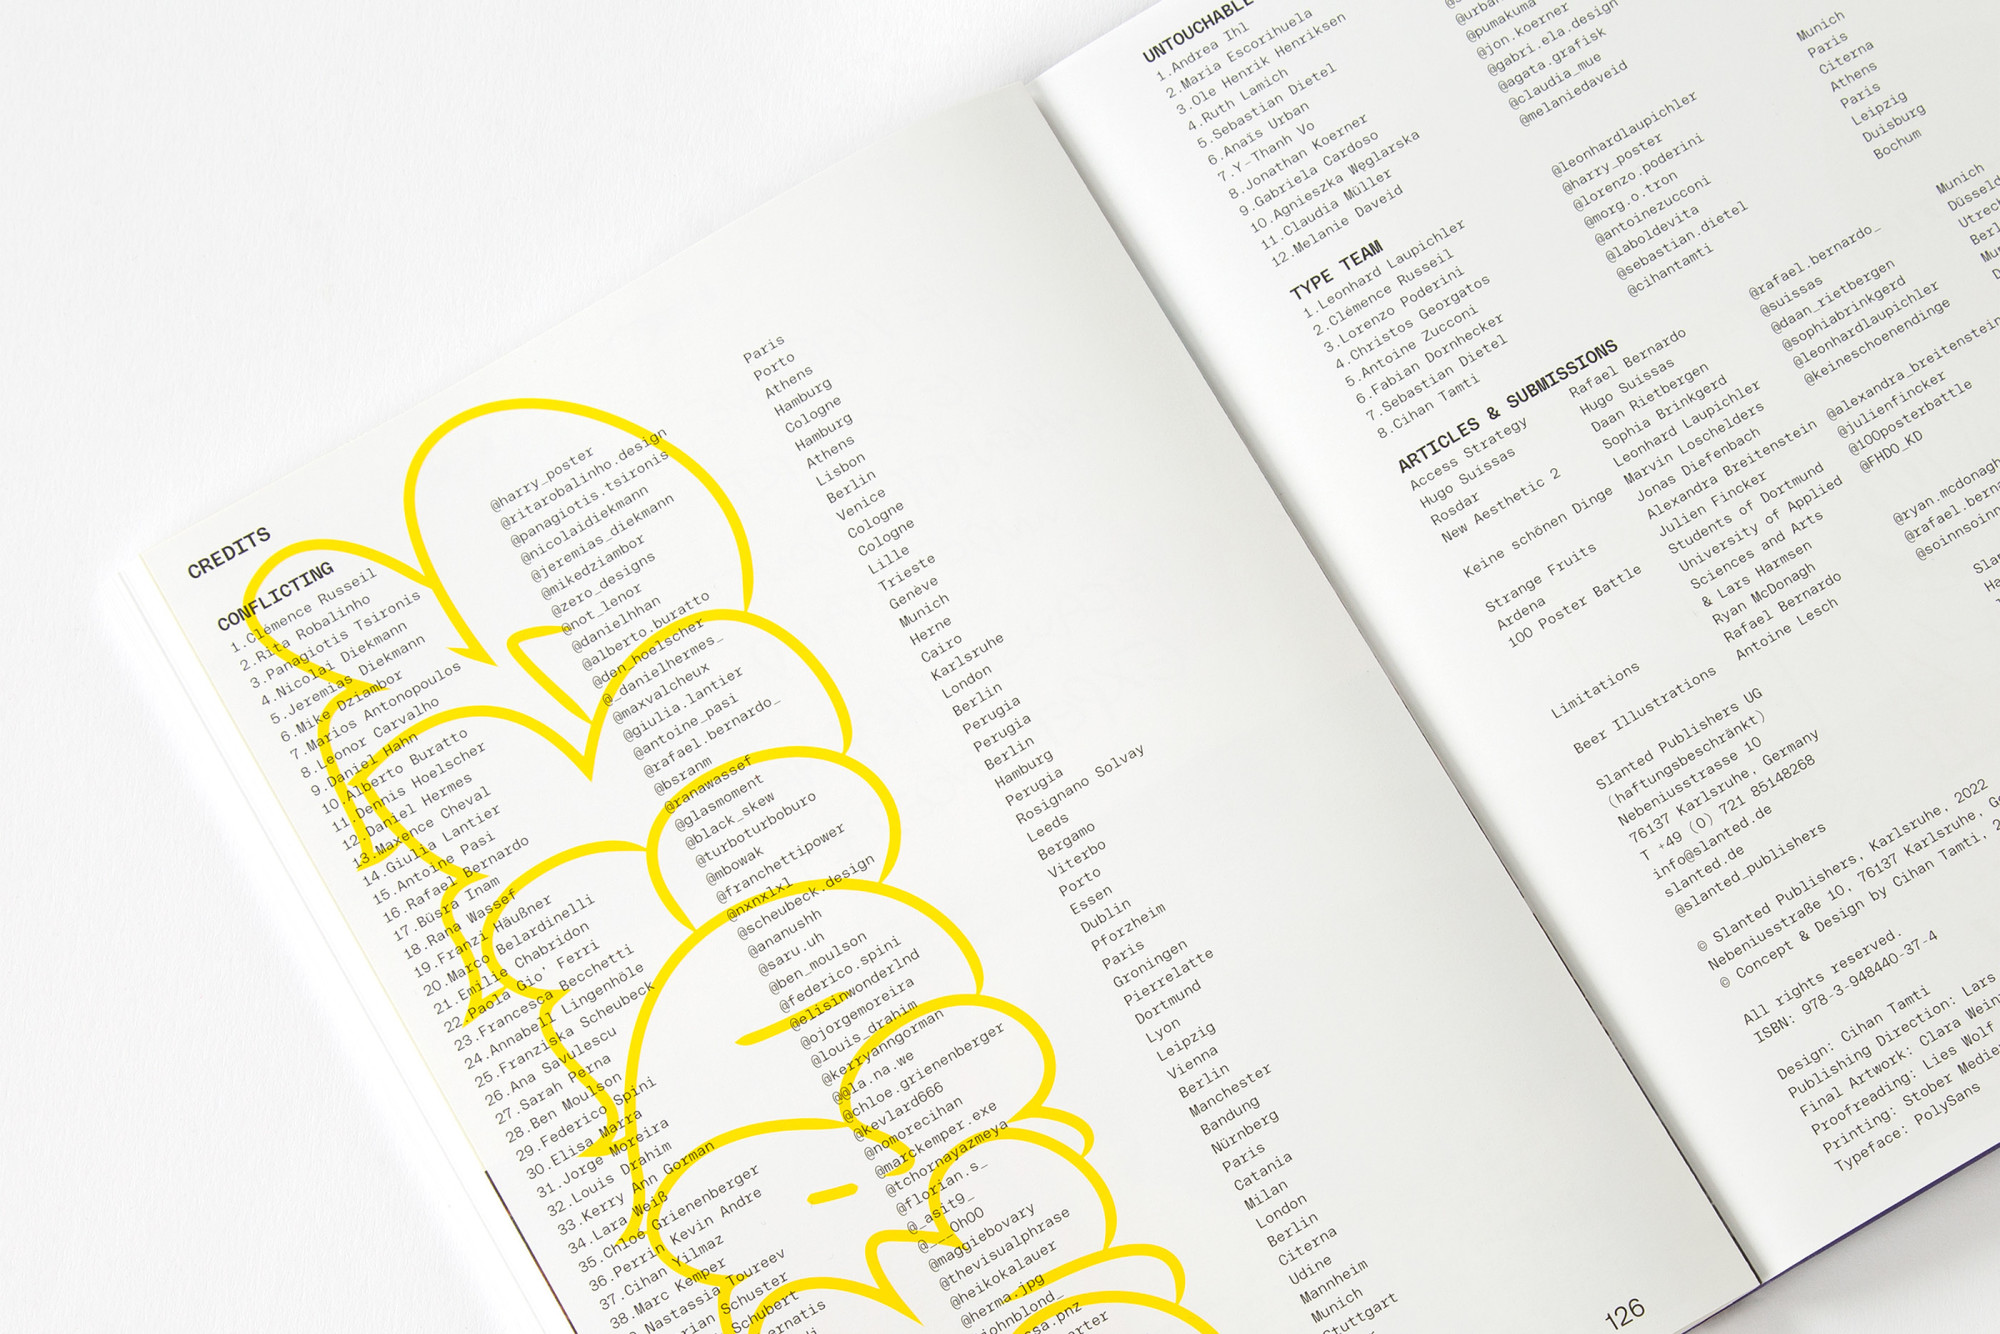 CREDITS
CONFLICTING
1.Clémence Russeil
2.Rita Robalinho
3.Panagiotis Tsironis
4.Nicolai Diekmann
5.Jeremias Diekmann
6.Mike Dziambor
7.Marios Antonopoulos
8.Leonor Carvalho
9.Daniel Hahn
10.Alberto Buratto
11.Dennis Hoelscher
12.Daniel Hermes
13.Maxence Cheval
14.Giulia Lantier
15.Antoine Pasi
16.Rafael Bernardo
17.Büsra Inam
18.Rana Wassef
19.Franzi Häußner
20.Marco Gelardinelli
21.Emilie Chabridon
22.Paola Gio' Ferri
23.Francesca Becchetti
24.Annabell Lingenhöle
25.Franziska Scheubeck
26.Ana Savulescu
27.Sarah Perna
28.Ben Moulson
29.Federico Spini
30.Elisa Marra
31.Jorge Moreira
32.Louis Drahim
33.Kerry Ann Gorman
34.Lara Weiß
35.Chloé Grienenberger
36.Perrin Kevin Andre
37.Cihan Yilmaz
38.Marc Kemper
Nastassia Toureev
Schuster
Schubert
@harry_poster
@ritarobalinho.design
@panagiotis.tsironis
@nicolaidiekmann
@jeremias_diekmann
@mikedziambor
@zero_designs
@not_lenor
@danielhhan
@alberto.buratto
@den_hoelscher
@_danielhermes_
@maxvalcheux
@giulia.lantier
@antoine_pasi
@rafael.bernardo_
@bsranm
@ranawassef
@glasmoment
@black_skew
@turboturboburo
@mbowak
@franchettipower
@nxnxlxl
@scheubeck.design
@ananushh
@saru.uh
@ben_moulson
@federico.spini
@elisinwonderlnd
@ojorgemoreira
@louis_drahim
@kerryanngorman
@@la.na.we
@chloe.grienenberger
@kevlard666
@nomorecihan
@marckemper.exe
@tchornayazmeya
@florian.s_
@_asit9_
@___0h00
@maggiebovary
@thevisualphrase
@heikokalauer
@herma.jpg
johnblond_
Paris
Porto
Athens
Hamburg
Cologne
Hamburg
Athens
Lisbon
Berlin
Venice
Cologne
Cologne
Lille
Trieste
Genève
Munich
Herne
Cairo
Karlsruhe
London
Berlin
Perugia
Perugia
Berlin
Hamburg
Perugia
Rosignano Solvay
Leeds
Bergamo
Viterbo
Porto
Essen
Dublin
Pforzheim
Paris
Groningen
Pierrelatte
Dortmund
Lyon
Leipzig
Vienna
Berlin
Manchester
Bandung
Nürnberg
Paris
Catania
Milan
London
Berlin
Citerna
Udine
Mannheim
Munich
Stuttgart
126
UNTOUCHABLE
1.Andrea Ihl
2.Maria Escorihuela
3.Ole Henrik Henriksen
4.Ruth Lamich
5.Sebastian Dietel
6.Anaïs Urban
7.Y-Thanh Vo
8.Jonathan Koerner
9.Gabriela Cardoso
10.Agnieszka Węglarska
11.Claudia Müller
12.Melanie Daveid
@pumakuma
@jon.koerner
@gabri.ela.design
@agata.grafisk
@claudia_mue
@melaniedaveid
TYPE TEAM
1.Leonhard Laupichler
2.Clémence Russeil
3.Lorenzo Poderini
4.Christos Georgatos
5.Antoine Zucconi
6.Fabian Dornhecker
7.Sebastian Dietel
8.Cihan Tamti
@leonhardlaupichler
@harry_poster
@lorenzo.poderini
@morg.o.tron
@antoinezucconi
@laboldevita
@sebastian.dietel
@cihantamti
Munich
Paris
Citerna
Athens
Paris
Leipzig
Duisburg
Bochum
ARTICLES & SUBMISSIONS
Access Strategy
Hugo Suissas
Rosdar
New Aesthetic 2
Keine schönen Dinge
Strange Fruits
Ardena
100 Poster Battle
Limitations
Beer Illustrations
Rafael Bernardo
Hugo Suissas
Daan Rietbergen
Sophia Brinkgerd
Leonhard Laupichler
Marvin Loschelders
Jonas Diefenbach
Alexandra Breitenstein
Julien Fincker
Students of Dortmund
University of Applied
Sciences and Arts
& Lars Harmsen
Ryan McDonagh
Rafael Bernardo
Antoine Lesch
@rafael.bernardo_
@suissas
@daan_rietbergen
@sophiabrinkgerd
@leonhardlaupichler
@keineschoenendinge
@alexandra_breitenstein
@julienfincker
@100posterbattle
@FHDO_KD
@ryan.mcdonagh
Munich
Slanted Publishers UG
(haftungsbeschränkt)
Nebeniusstrasse 10
76137 Karlsruhe, Germany
T +49 (0) 721 85148268
info@slanted.de
slanted.de
@slanted_publishers
© Slanted Publishers, Karlsruhe, 2022
Nebeniusstraße 10, 76137 Karlsruhe,
© Concept & Design by Cihan Tamti,
All rights reserved.
ISBN: 978-3-948440-37-4
Design: Cihan Tamti
Publishing Direction: Lars
Final Artwork: Clara
Proofreading: Lies Wolf
Printing: Stober
Typeface: PolySans